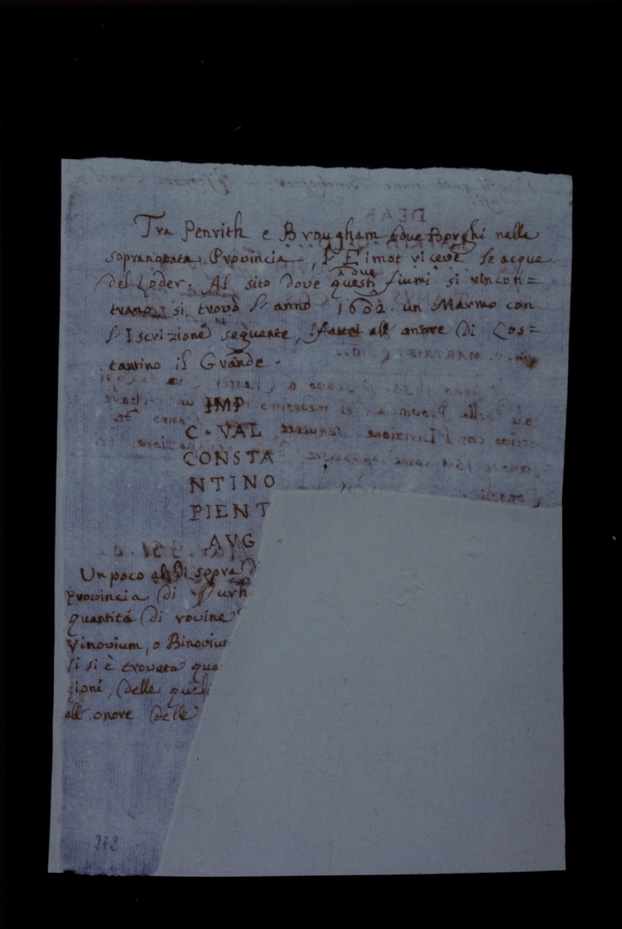 Tra Penrith e Brougham due Borghi nella
sopranotata Provincia, l'Eimot riceve le acque
del Loder. Al sito dove questi a due fiumi si rincon=
trano si trovò l'anno 1602 un Marmo con
l'Iscrizione seguente, fatta all'onore di Cos=
tantino il Grande.
IMP
C. VAL
CONSTA
NTINO
PIENT
AVG
Un poco al di sopra
provincia di Durh
quantitá di rovine
Vinovium, o Binovium
li si è trovata qua
zioni, delle quali
all'onore delle
272